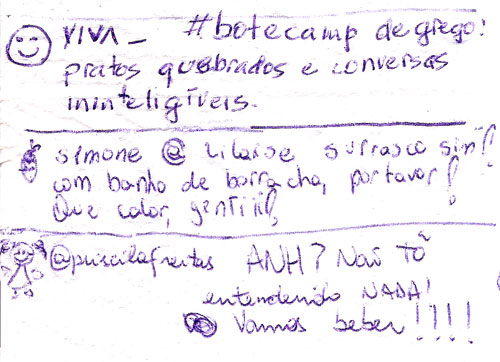 VIVA_ #botecamp de grego:
pratos quebrados e conversas
ininteligíveis.
simone @ surrasco sim!
com banho de borracha, por favor!
Que calor, gentiii!,
@priscilafreitas ANH? Não TÔ
entendendo NADA!
Vamos beber!!!!